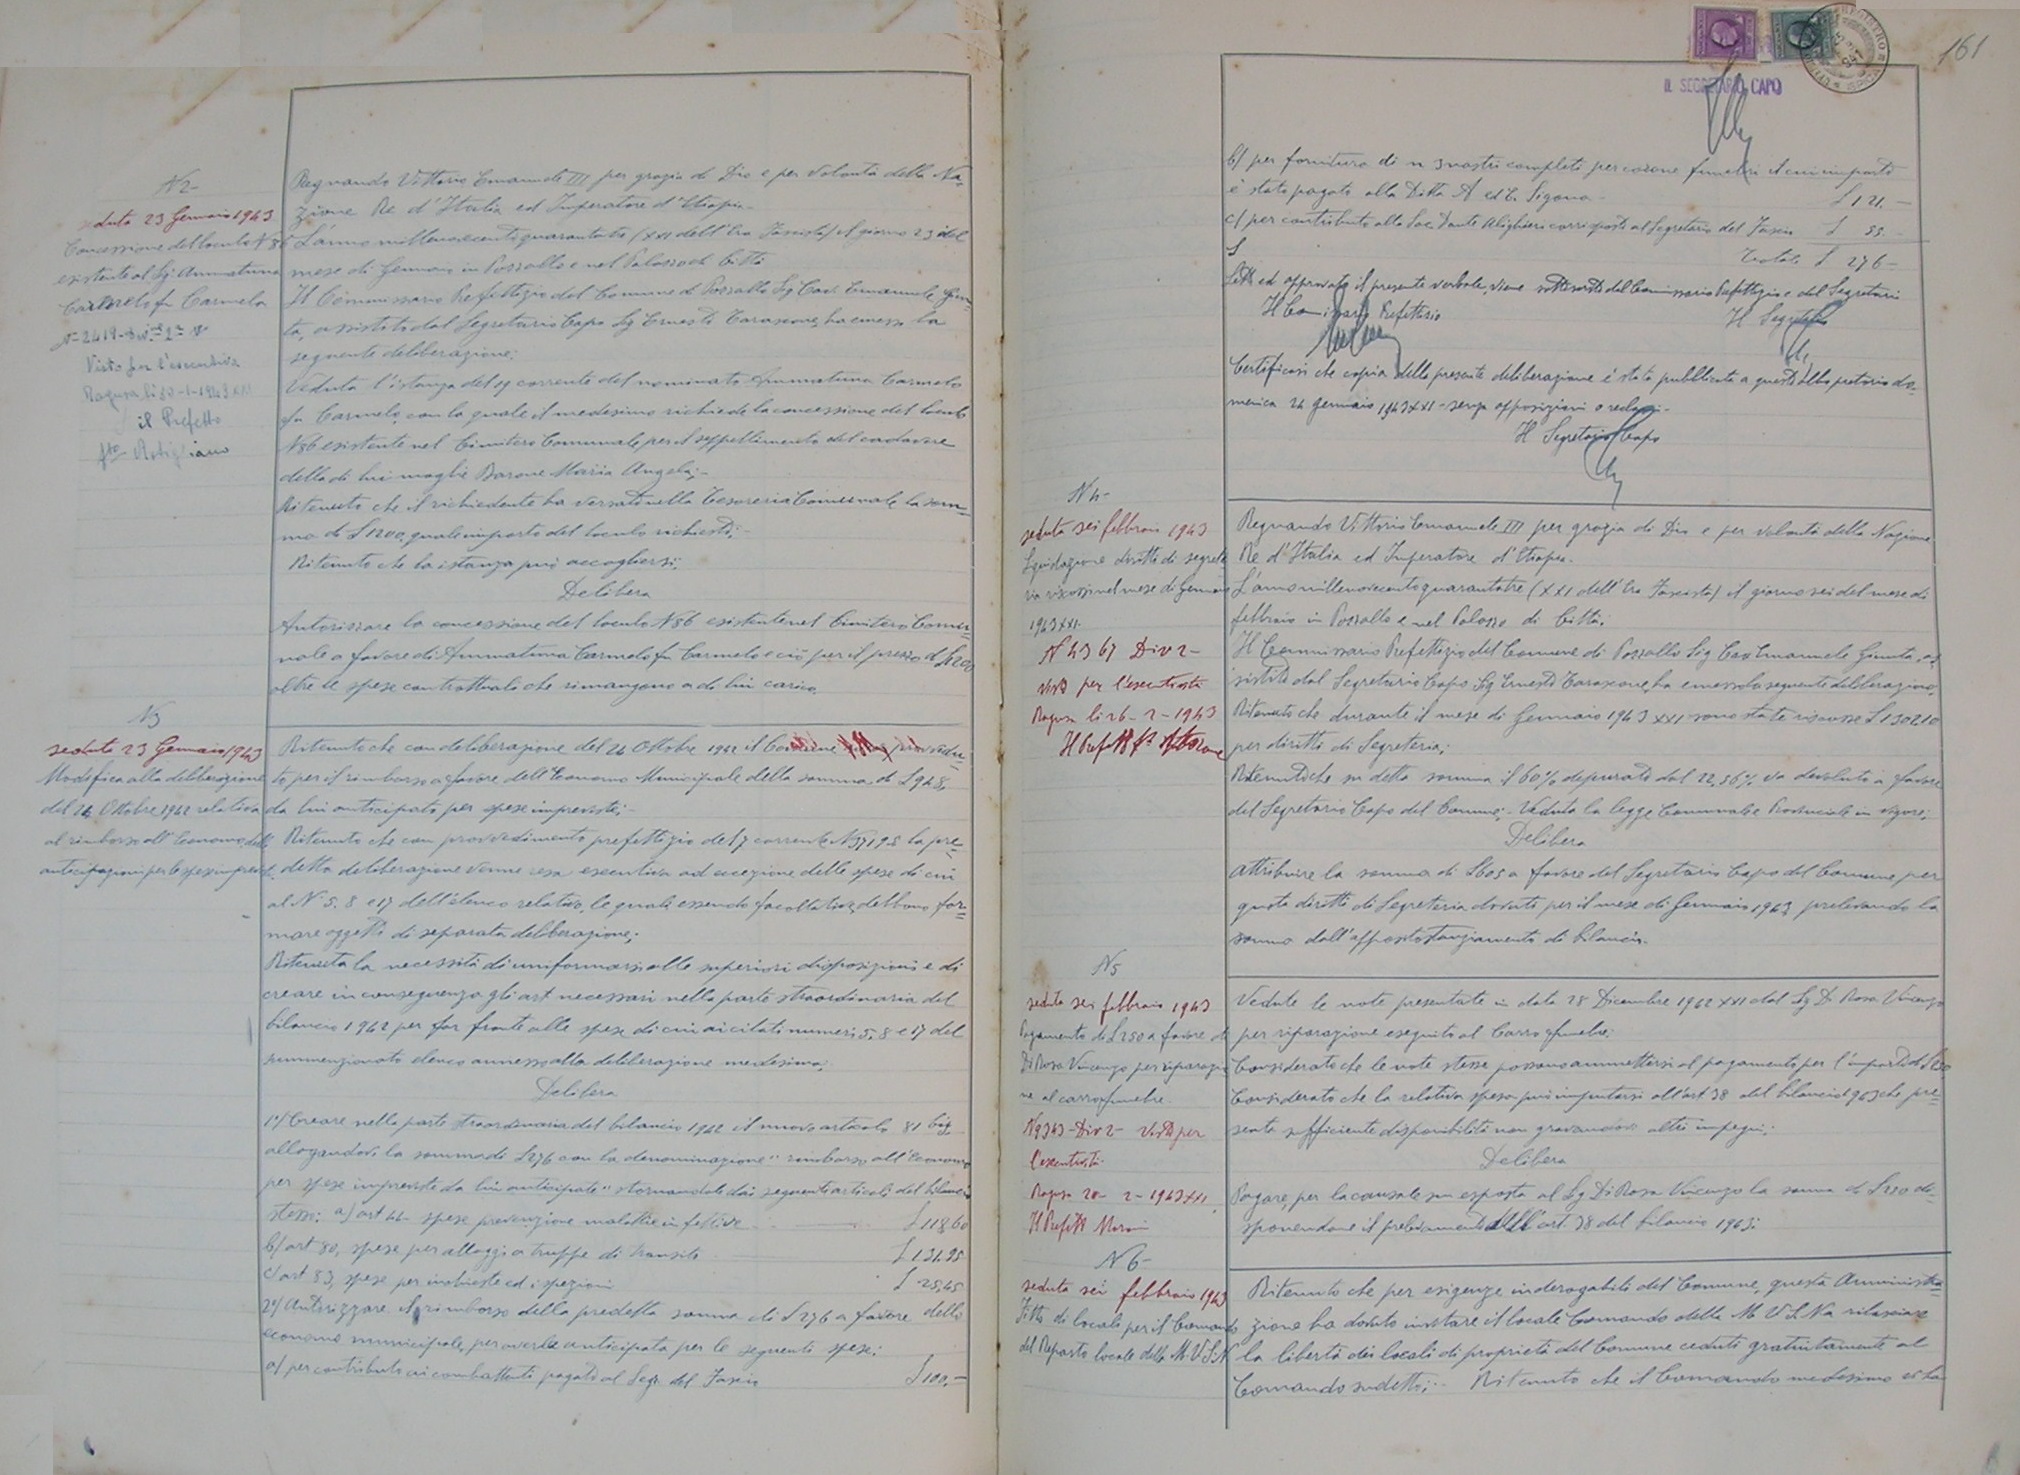 N 2-
seduta 23 Gennaio 1943
Concessione del loculo N 86
esistente al Sg. Ammatuna
Carmelo fu Carmelo
N- 2418- Div. 2ª
Visto per l'esecutività
Ragusa li 30-1-1943 XXI
il Prefetto
fto
Regnando Vittorio Emanuele III per grazia di Dio e per volontà della Na=
zione Re d'Italia ed Imperatore d'Etiopia.
L'anno millenovecentoquarantatre (XXI dell'Era Fascista) il giorno 23 del
mese di Gennaio in Pozzallo e nel Palazzo di Città
Il Commissario Prefettizio del Comune di Pozzallo Sig Cav. Emanuele Giun=
ta, assistito dal Segretario Capo Sig Ernesto Tarascone, ha emesso la
seguente deliberazione:
Veduta l'istanza del 19 corrente del nominato Ammatuna Carmelo
fu Carmelo, con la quale il medesimo richiede la concessione del loculo
N86 esistente nel Cimitero Comunale per il seppellimento del cadavere
della di lui moglie Barone Maria Angela;-
Ritenuto che il richiedente ha versato nella Tesoreria Comunale la som=
ma di £ 1200, quale importo del loculo richiesto;-
Ritenuto che la istanza può accogliersi;
Delibera
Autorizzare la concessione del loculo N86 esistente nel Cimitero Comu=
nale a favore di Ammatuna Carmelo fu Carmelo e ciò per il prezzo di £1200
oltre le spese contrattuali che rimangono a di lui carico.
N3
seduta 23 Gennaio 1943
Modifica alla deliberazione
del 24 Ottobre 1942 relativa
al rimborso all'Economo delle
anticipazioni per le spese imprevist.
Ritenuto che con deliberazione del 24 Ottobre 1942 il Comune provvedu=
to per il rimborso a favore dell'Economo Municipale della somma di £ 948,
da lui anticipato per spese impreviste;-
Ritenuto che con provvedimento prefettizio del 7 corrente N37195 la pre=
detta deliberazione venne resa esecutiva ad eccezione delle spese di cui
al N° 5. 8 e 17 dell'elenco relativo, le quali essendo facoltative debbono for=
mare oggetto di separata deliberazione;
Ritenuta la necessità di uniformarsi alle superiori disposizioni e di
creare in conseguenza gli art necessari nella parte straordinaria del
bilancio 1942 per far fronte alle spese di cui ai citati numeri 5, 8 e 17 del
summenzionato elenco annesso alla deliberazione medesima;
Delibera
1°/ Creare nella parte straordinaria del bilancio 1942 il nuovo articolo 81 bis
allogandovi la somma di £276 con la denominazione "rimborso all'Economo
per spese impreviste da lui anticipate" stornandola dai seguenti articoli del bilancio
stesso: a/ art 44 spese prevenzione malattie infettive £ 118,60
b/ art 80, spese per alloggi a truppe di transito £ 131.95
c/ art 83, spese per inchieste ed ispezioni £ 25,45
2°/ Autorizzare il rimborso della predetta somma di £ 276 a favore dello
economo municipale, per averla anticipata per le seguenti spese:
a/ per contributo ai combattenti pagato al Segr. del Fascio £ 100,-
161
IL SEGRETARIO CAPO
b/ per fornitura di n 3 nastri completi per corone funebri il cui importo
è stato pagato alla Ditta A ed E. Sigona £ 121.-
c/ per contributo alla Soc. Dante Alighieri corrisposto al Segretario del Fascio £ 55.-
Totale £ 276-
Letto ed approvato il presente verbale, viene sottoscritto dal Commissario Prefettizio e dal Segretario
Il Commissario Prefettizio Il Segretario
Certificasi che copia della presente deliberazione è stata pubblicata a questo Albo pretorio do=
menica 24 gennaio 1943 XXI- senza opposizioni o reclami-
Il Segretario Capo
N4-
seduta sei febbraio 1943
Liquidazione diritti di segrete
ria riscossi nel mese di Gennaio
1943 XXI.
N 4367 Div 2-
visto per l'esecutività
Ragusa li 26-2-1943
Il Prefetto
Regnando Vittorio Emanuele III per grazia di Dio e per volontà della Nazione
Re d'Italia ed Imperatore d'Etiopia.
L'anno millenovecentoquarantatre (XXI dell'Era Fascista) il giorno sei del mese di
febbraio in Pozzallo e nel Palazzo di Città;
Il Commissario Prefettizio del Comune di Pozzallo Sig Cav Emanuele Giunta, as=
sistito dal Segretario Capo Sig Ernesto Tarascone, ha emesso la seguente deliberazione;
Ritenuto che durante il mese di Gennaio 1943 XXI sono state riscosse £ 1302.10
per diritti di Segreteria;
Ritenuto che su detta somma il 60% depurato dal 22,56% va devoluto a favore
del Segretario Capo del Comune;- Veduta la legge Comunale e Provinciale in vigore;
Delibera
Attribuire la somma di £605 a favore del Segretario Capo del Comune per
quota diritti di Segreteria dovuti per il mese di Gennaio 1943 prelevando la
somma dall'apposito stanziamento di bilancio.
N5
seduta sei febbraio 1943
Pagamento di £ 250 a favore di
Di Rosa Vincenzo per riparazio
ne al carro funebre
N9343-Div 2- Visto per
l'esecutività
Ragusa 20- 2-1943 XXI
Il Prefetto
Vedute le note presentate in data 28 Dicembre 1942 XXI dal Sg Di Rosa Vincenzo
per riparazione eseguite al Carro funebre;
Considerato che le note stesse possono ammettersi al pagamento per l'importo di £ 250
Considerato che la relativa spesa può imputarsi all'art 38 del bilancio 1943 che pre=
senta sufficiente disponibilità non gravandovi altri impegni;
Delibera
Pagare, per la causale su esposta al Sg Di Rosa Vincenzo la somma di £ 250 di=
sponendone il prelevamento dall'art. 38 del bilancio 1943;
N6-
seduta sei febbraio 1943
Fitto di locale per il Comando
del Reparto locale della M.V.S.N
Ritenuto che per esigenze inderogabili del Comune, questa Amministra=
zione ha dovuto invitare il locale Comando della M V S N a rilasciare
la libertà dei locali di proprietà del Comune ceduti gratuitamente al
Comando sudetto;- Ritenuto che il Comando medesimo si ha